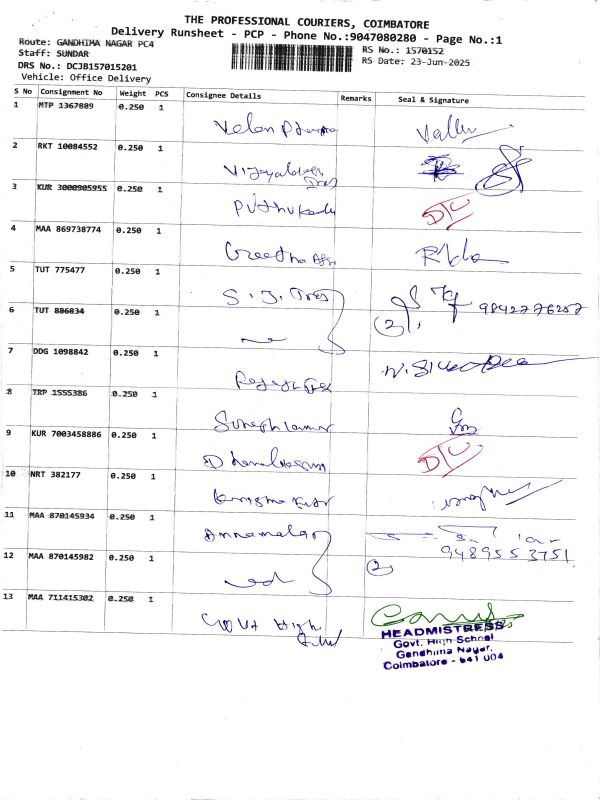 THE PROFESSIONAL COURIERS, COIMBATORE
Delivery Runsheet - PCP - Phone No.:9047080280 - Page No.:1
Route: GANDHIMA NAGAR PC4
RS No.: 1570152
Staff: SUNDAR
RS Date: 23-Jun-2025
DRS No.: DCJB157015201
Vehicle: Office Delivery
S No Consignment No Weight PCS Consignee Details Remarks Seal & Signature
1 MTP 1367089 0.250 1
Velan Pharma
2 RKT 10084552 0.250 1
3 KUR 3000905955 0.250 1
D/C
4 MAA 869738774 0.250 1
Geetha
5 TUT 775477 0.250 1
S. J.
9842776207
6 TUT 886034 0.250 1
(2)
7 DDG 1098842 0.250 1
8 TRP 1555386 0.250 1
Suresh Kumar
9 KUR 7003458886 0.250 1
D/C
10 NRT 382177 0.250 1
11 MAA 870145934 0.250 1
Annamalai
9489553751
12 MAA 870145982 0.250 1
(2)
13 MAA 711415302 0.250 1
Govt High
HEADMISTRESS
Govt. High School
Gandhima Nagar,
Coimbatore - 641 004